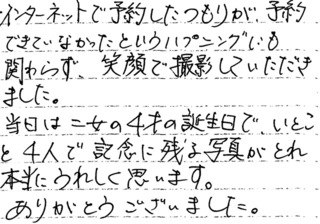 インターネットで予約したつもりが、予約
できていなかったというハプニングにも
関わらず、笑顔で撮影していただき
ました。
当日は二女の4才の誕生日で、いとこ
と4人で記念に残る写真がとれ
本当にうれしく思います。
ありがとうございました。